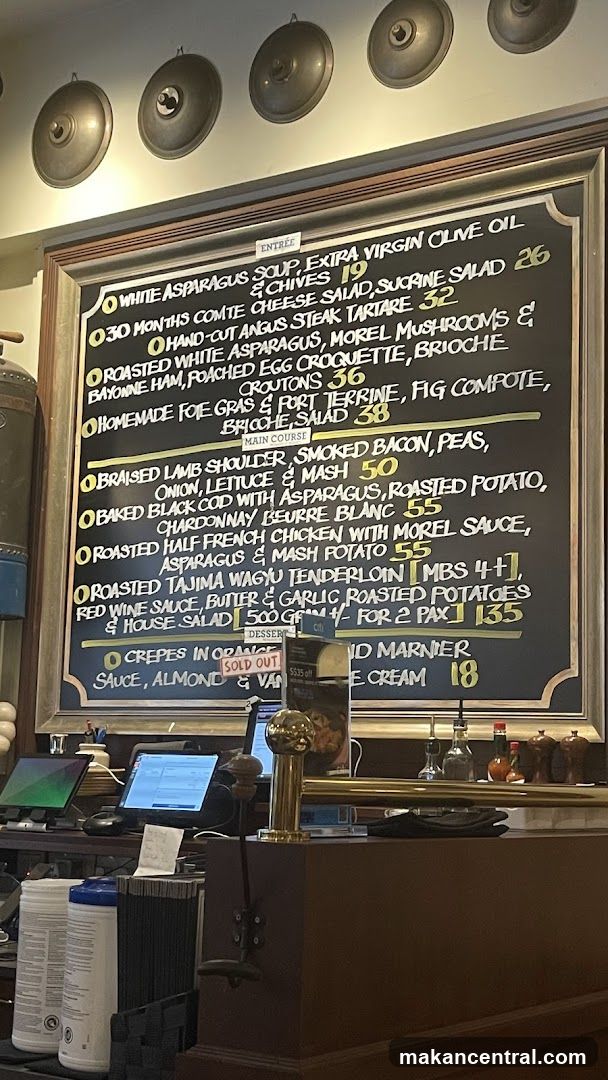 ENTRÉE
O WHITE ASPARAGUS SOUP, EXTRA VIRGIN OLIVE OIL
& CHIVES 19
O 30 MONTHS COMTE CHEESE SALAD, SUCRINE SALAD 26
O HAND-CUT ANGUS STEAK TARTARE 32
O ROASTED WHITE ASPARAGUS, MOREL MUSHROOMS &
BAYONNE HAM, POACHED EGG CROQUETTE, BRIOCHE
CROUTONS 36
O HOMEMADE FOIE GRAS & PORT TERRINE, FIG COMPOTE,
BRIOCHE, SALAD 38
MAIN COURSE
O BRAISED LAMB SHOULDER, SMOKED BACON, PEAS,
ONION, LETTUCE & MASH 50
O BAKED BLACK COD WITH ASPARAGUS, ROASTED POTATO,
CHARDONNAY BEURRE BLANC 55
O ROASTED HALF FRENCH CHICKEN WITH MOREL SAUCE,
ASPARAGUS & MASH POTATO 55
O ROASTED TAJIMA WAGYU TENDERLOIN [MBS 4+],
RED WINE SAUCE, BUTTER & GARLIC ROASTED POTATOES
& HOUSE SALAD [500 GRAM +/- FOR 2 PAX] 135
DESSERT
O CREPES IN ORANGE ND MARNIER
SAUCE, ALMOND & VAN E CREAM 18
SOLD OUT
citi
S$35 off
makancentral.com